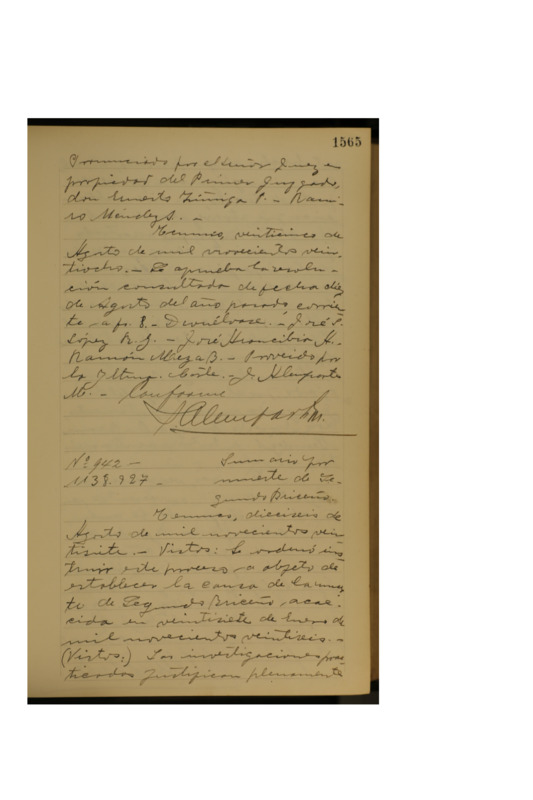 1565
Pronunciado por el señor Juez en
propiedad del Primer Juzgado,
don Ernesto Zúñiga P. - Rami-
ro Méndez A. -
Temuco, veinticinco de
Agosto de mil novecientos vein-
tiocho. - Se aprueba la resolu-
ción consultada de fecha diez
de Agosto del año pasado, corrien-
te a fs. 8. - Devuélvase. - José S.
López R. J. - José Arancibia A. -
Ramón Meza B. - Proveido por
la Iltma. Corte. - J. Alemparte
M. - Conforme
J. Alemparte M.
Nº 942 -
1138.927 -
Sumario por
muerte de Se-
gundo Briceño.
Temuco, dieciseis de
Agosto de mil novecientos vein-
tisiete. - Vistos: Se ordenó ins-
truir este proceso a objeto de
establecer la causa de la muer-
te de Segundo Briceño, acae-
cida en veintisiete de Enero de
mil novecientos veintiseis. -
(Vistos:) Las investigaciones prac-
ticadas justifican plenamente